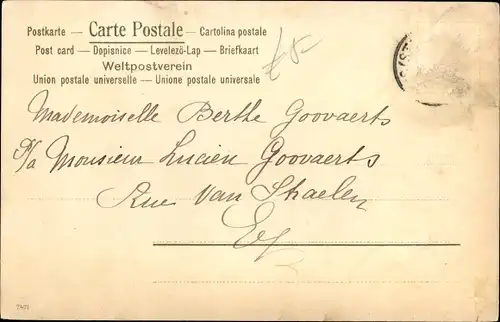 Postkarte — Carte Postale — Cartolina postale
Post card — Dopisnice — Levelező-Lap — Briefkaart
Weltpostverein
Union postale universelle — Unione postale universale
Mademoiselle Berthe Goovaerts
P/a Monsieur Lucien Goovaerts
Rue Van Straelen